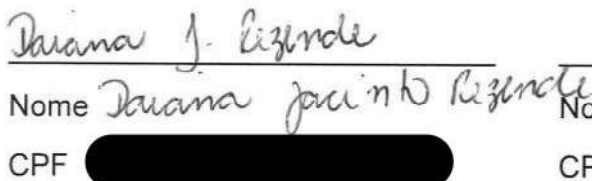 Daiana J. Rezende
Nome Daiana Jacinto Rezende No
CPF CP